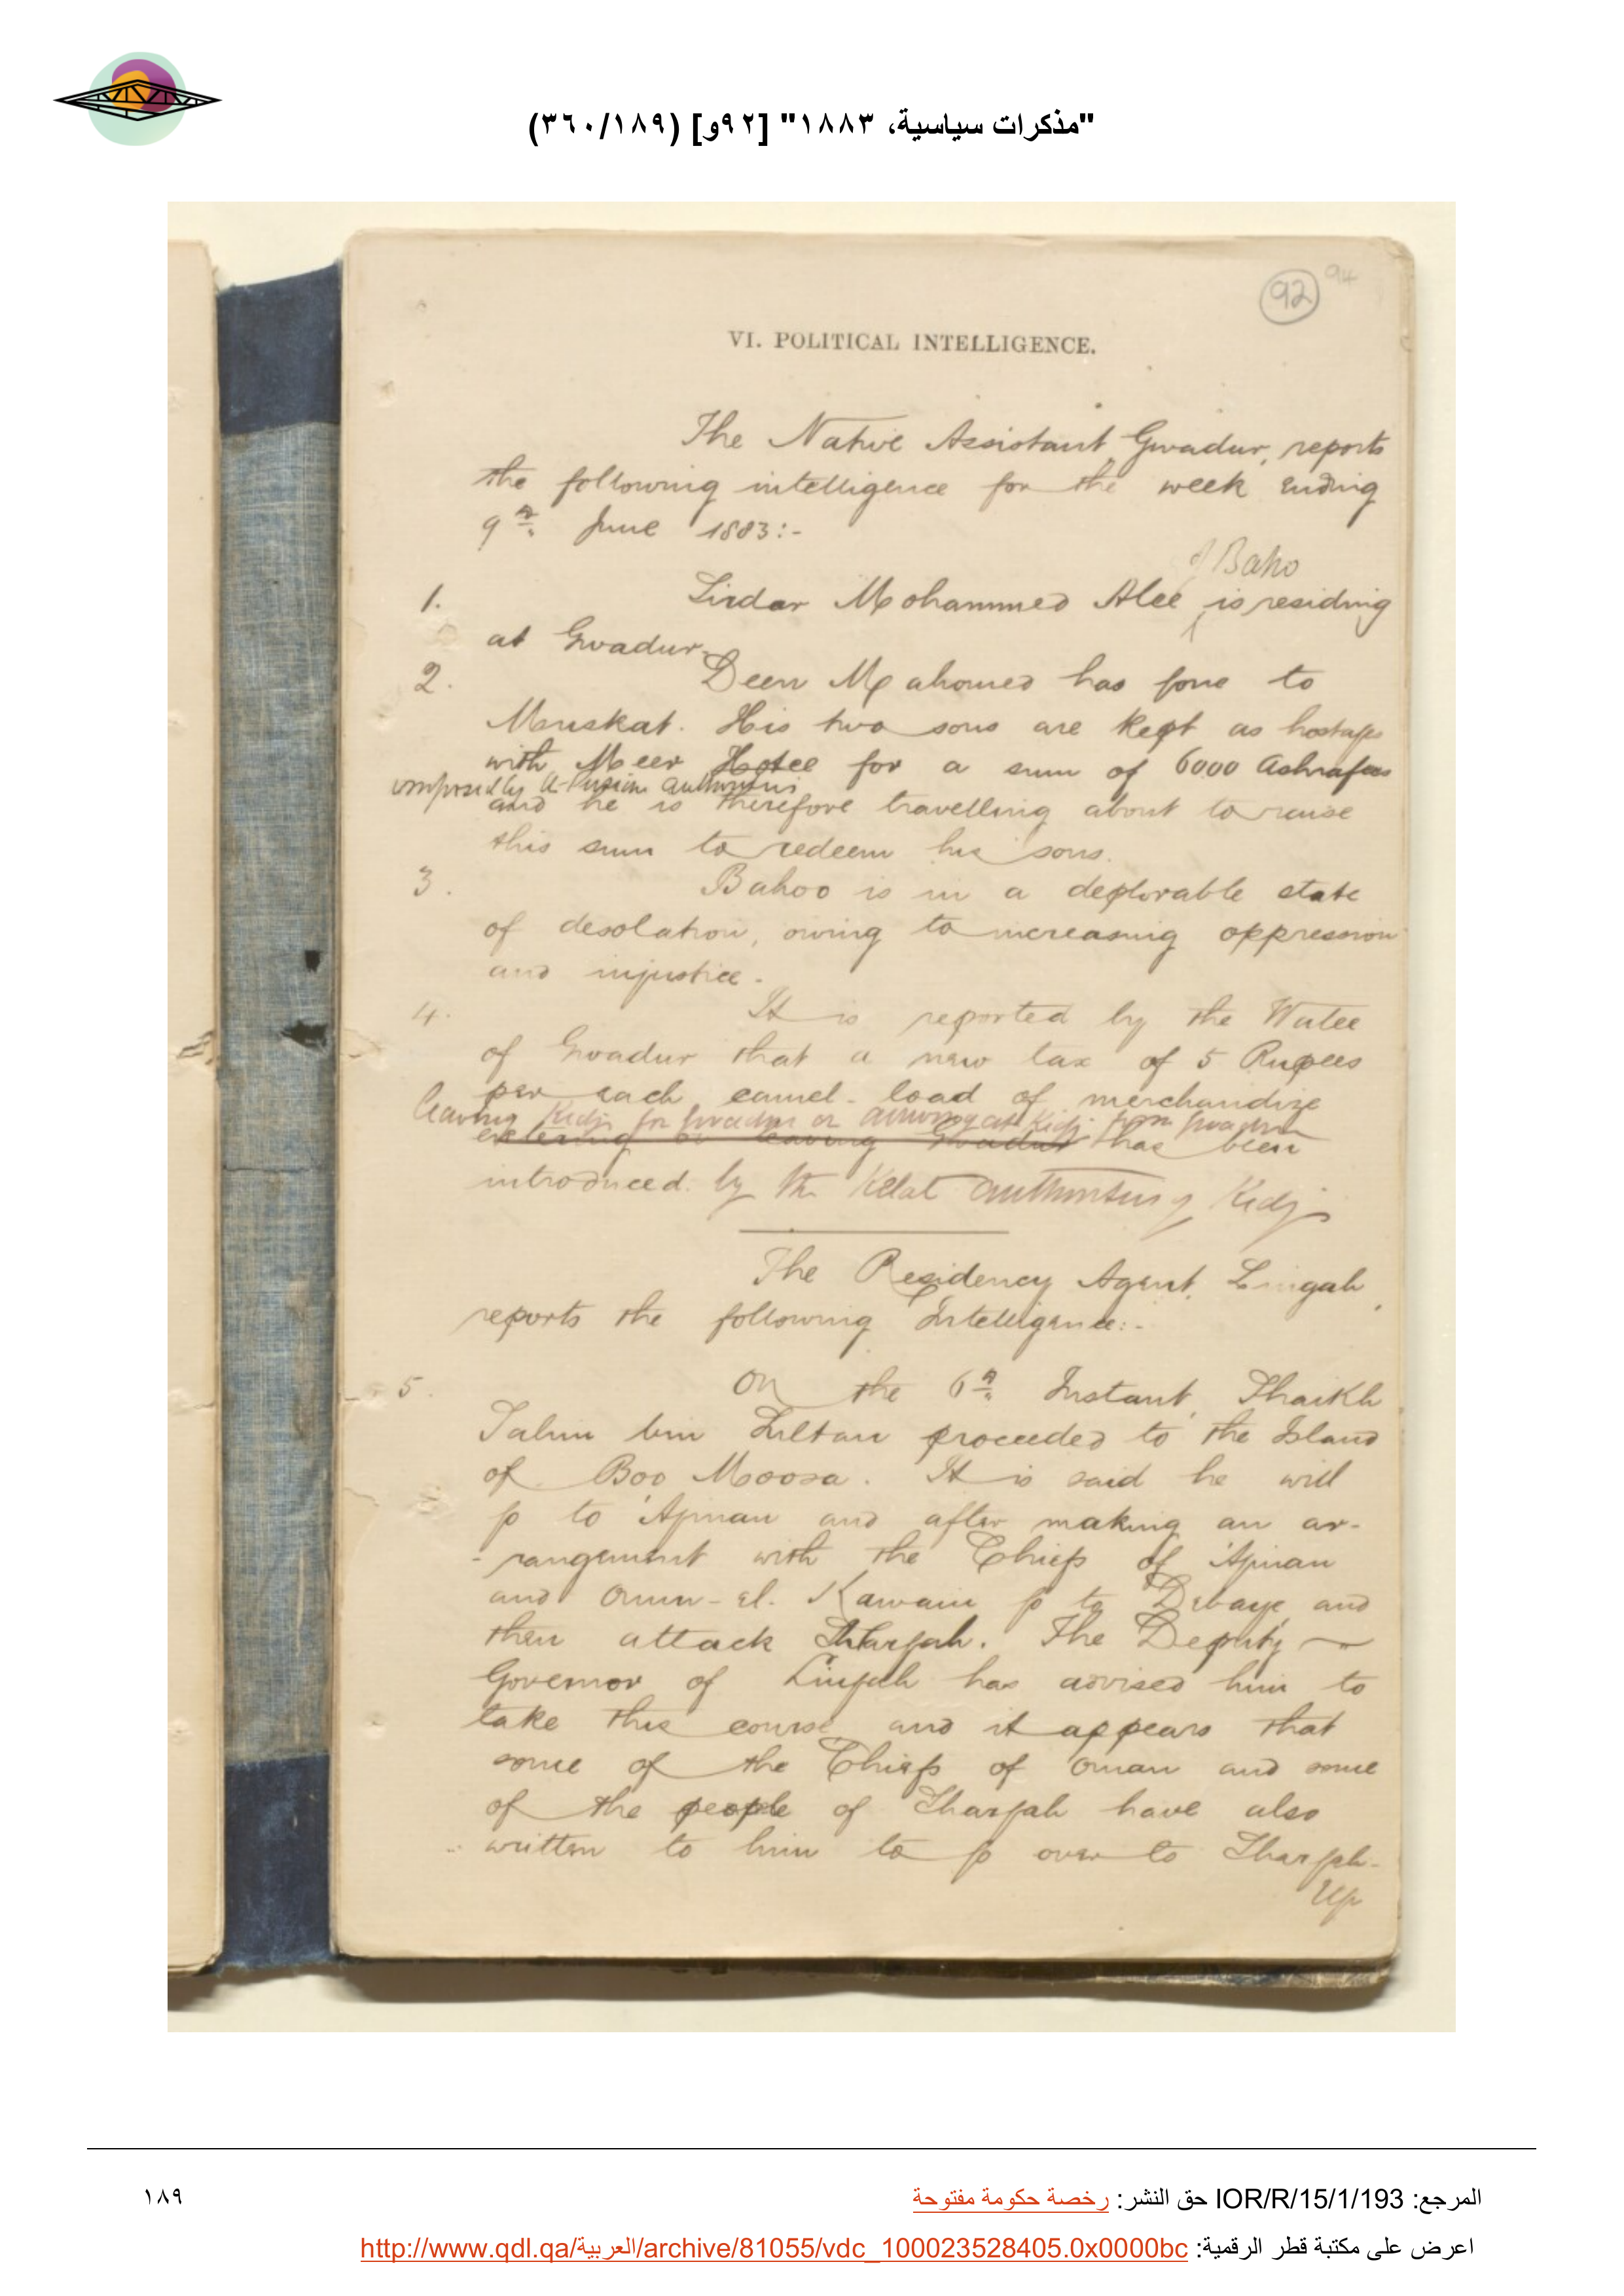 "مذكرات سياسية، ١٨٨٣" [٩٢و] (٣٦٠/١٨٩)
92 94
VI. POLITICAL INTELLIGENCE.
The Native Assistant, Gwadur, reports
the following intelligence for the week ending
9th June 1883:-
of Baho
1. Sirdar Mohammed Alee is residing
at Gwadur.
2. Deen Mahomed has gone to
Muskat. His two sons are kept as hostages
with Meer Hotee for a sum of 6000 Ashrafees
imposed by the Persian authorities
and he is therefore travelling about to raise
this sum to redeem his sons.
3. Bahoo is in a deplorable state
of desolation, owing to increasing oppression
and injustice.
4. It is reported by the Walee
of Gwadur that a new tax of 5 Rupees
per each camel-load of merchandize
leaving Kedj for Gwadur or arriving at Kedj from Gwadur
entering or leaving Gwadur has been
introduced by the Kelat authorities of Kedj
The Residency Agent, Lingah,
reports the following Intelligence:-
5. On the 6th Instant, Shaikh
Salim bin Sultan proceeded to the Island
of Boo Moosa. It is said he will
go to 'Ajman and after making an ar-
-rangement with the Chiefs of 'Ajman
and Omm-el-Kawain go to Debaye, and
then attack Shargah. The Deputy
Governor of Lingah has advised him to
take this course, and it appears that
some of the Chiefs of Oman and some
of the people of Shargah have also
written to him to go over to Shargah.
Up
المرجع: IOR/R/15/1/193 حق النشر: رخصة حكومة مفتوحة
١٨٩
اعرض على مكتبة قطر الرقمية: http://www.qdl.qa/العربية/archive/81055/vdc_100023528405.0x0000bc